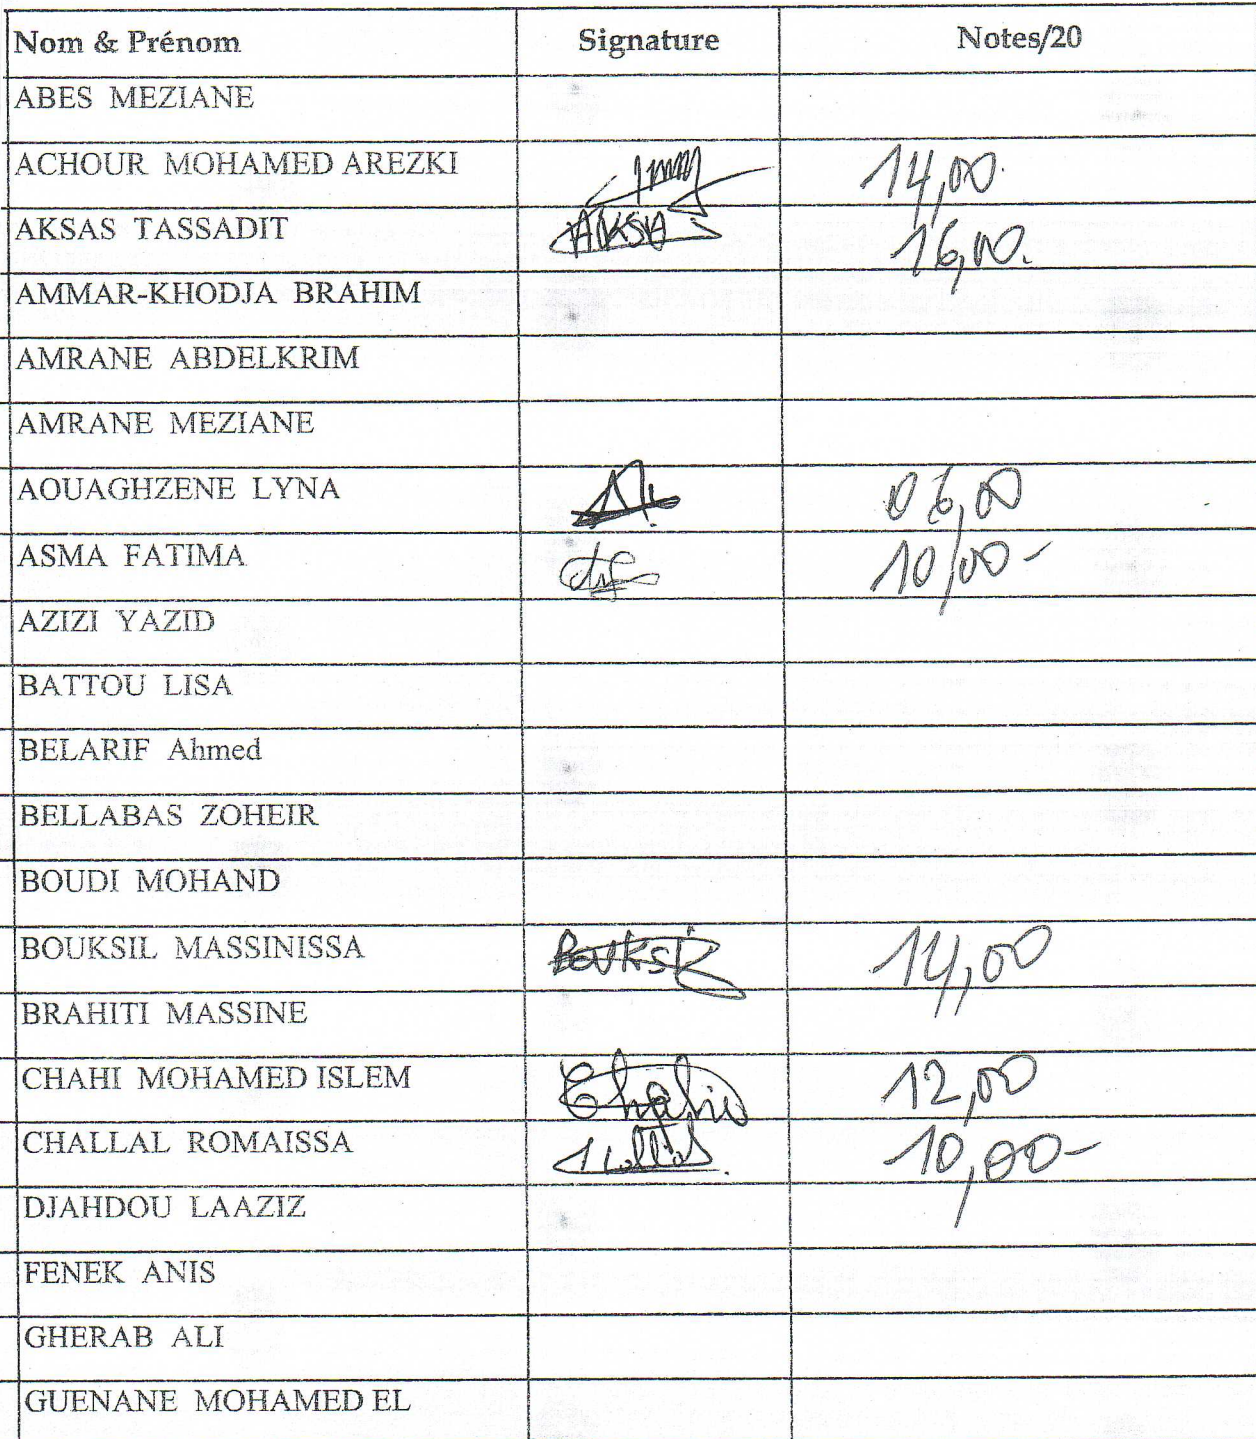 Nom & Prénom Signature Notes/20
ABES MEZIANE
ACHOUR MOHAMED AREZKI 14,00
AKSAS TASSADIT AKSAS 16,00.
AMMAR-KHODJA BRAHIM
AMRANE ABDELKRIM
AMRANE MEZIANE
AOUAGHZENE LYNA 06,00
ASMA FATIMA 10,00-
AZIZI YAZID
BATTOU LISA
BELARIF Ahmed
BELLABAS ZOHEIR
BOUDI MOHAND
BOUKSIL MASSINISSA BOUKSIL 14,00
BRAHITI MASSINE
CHAHI MOHAMED ISLEM 12,00
CHALLAL ROMAISSA 10,00-
DJAHDOU LAAZIZ
FENEK ANIS
GHERAB ALI
GUENANE MOHAMED EL